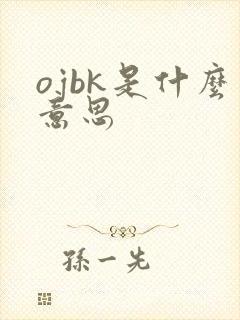 ojbk是什麼
意思
孫一先